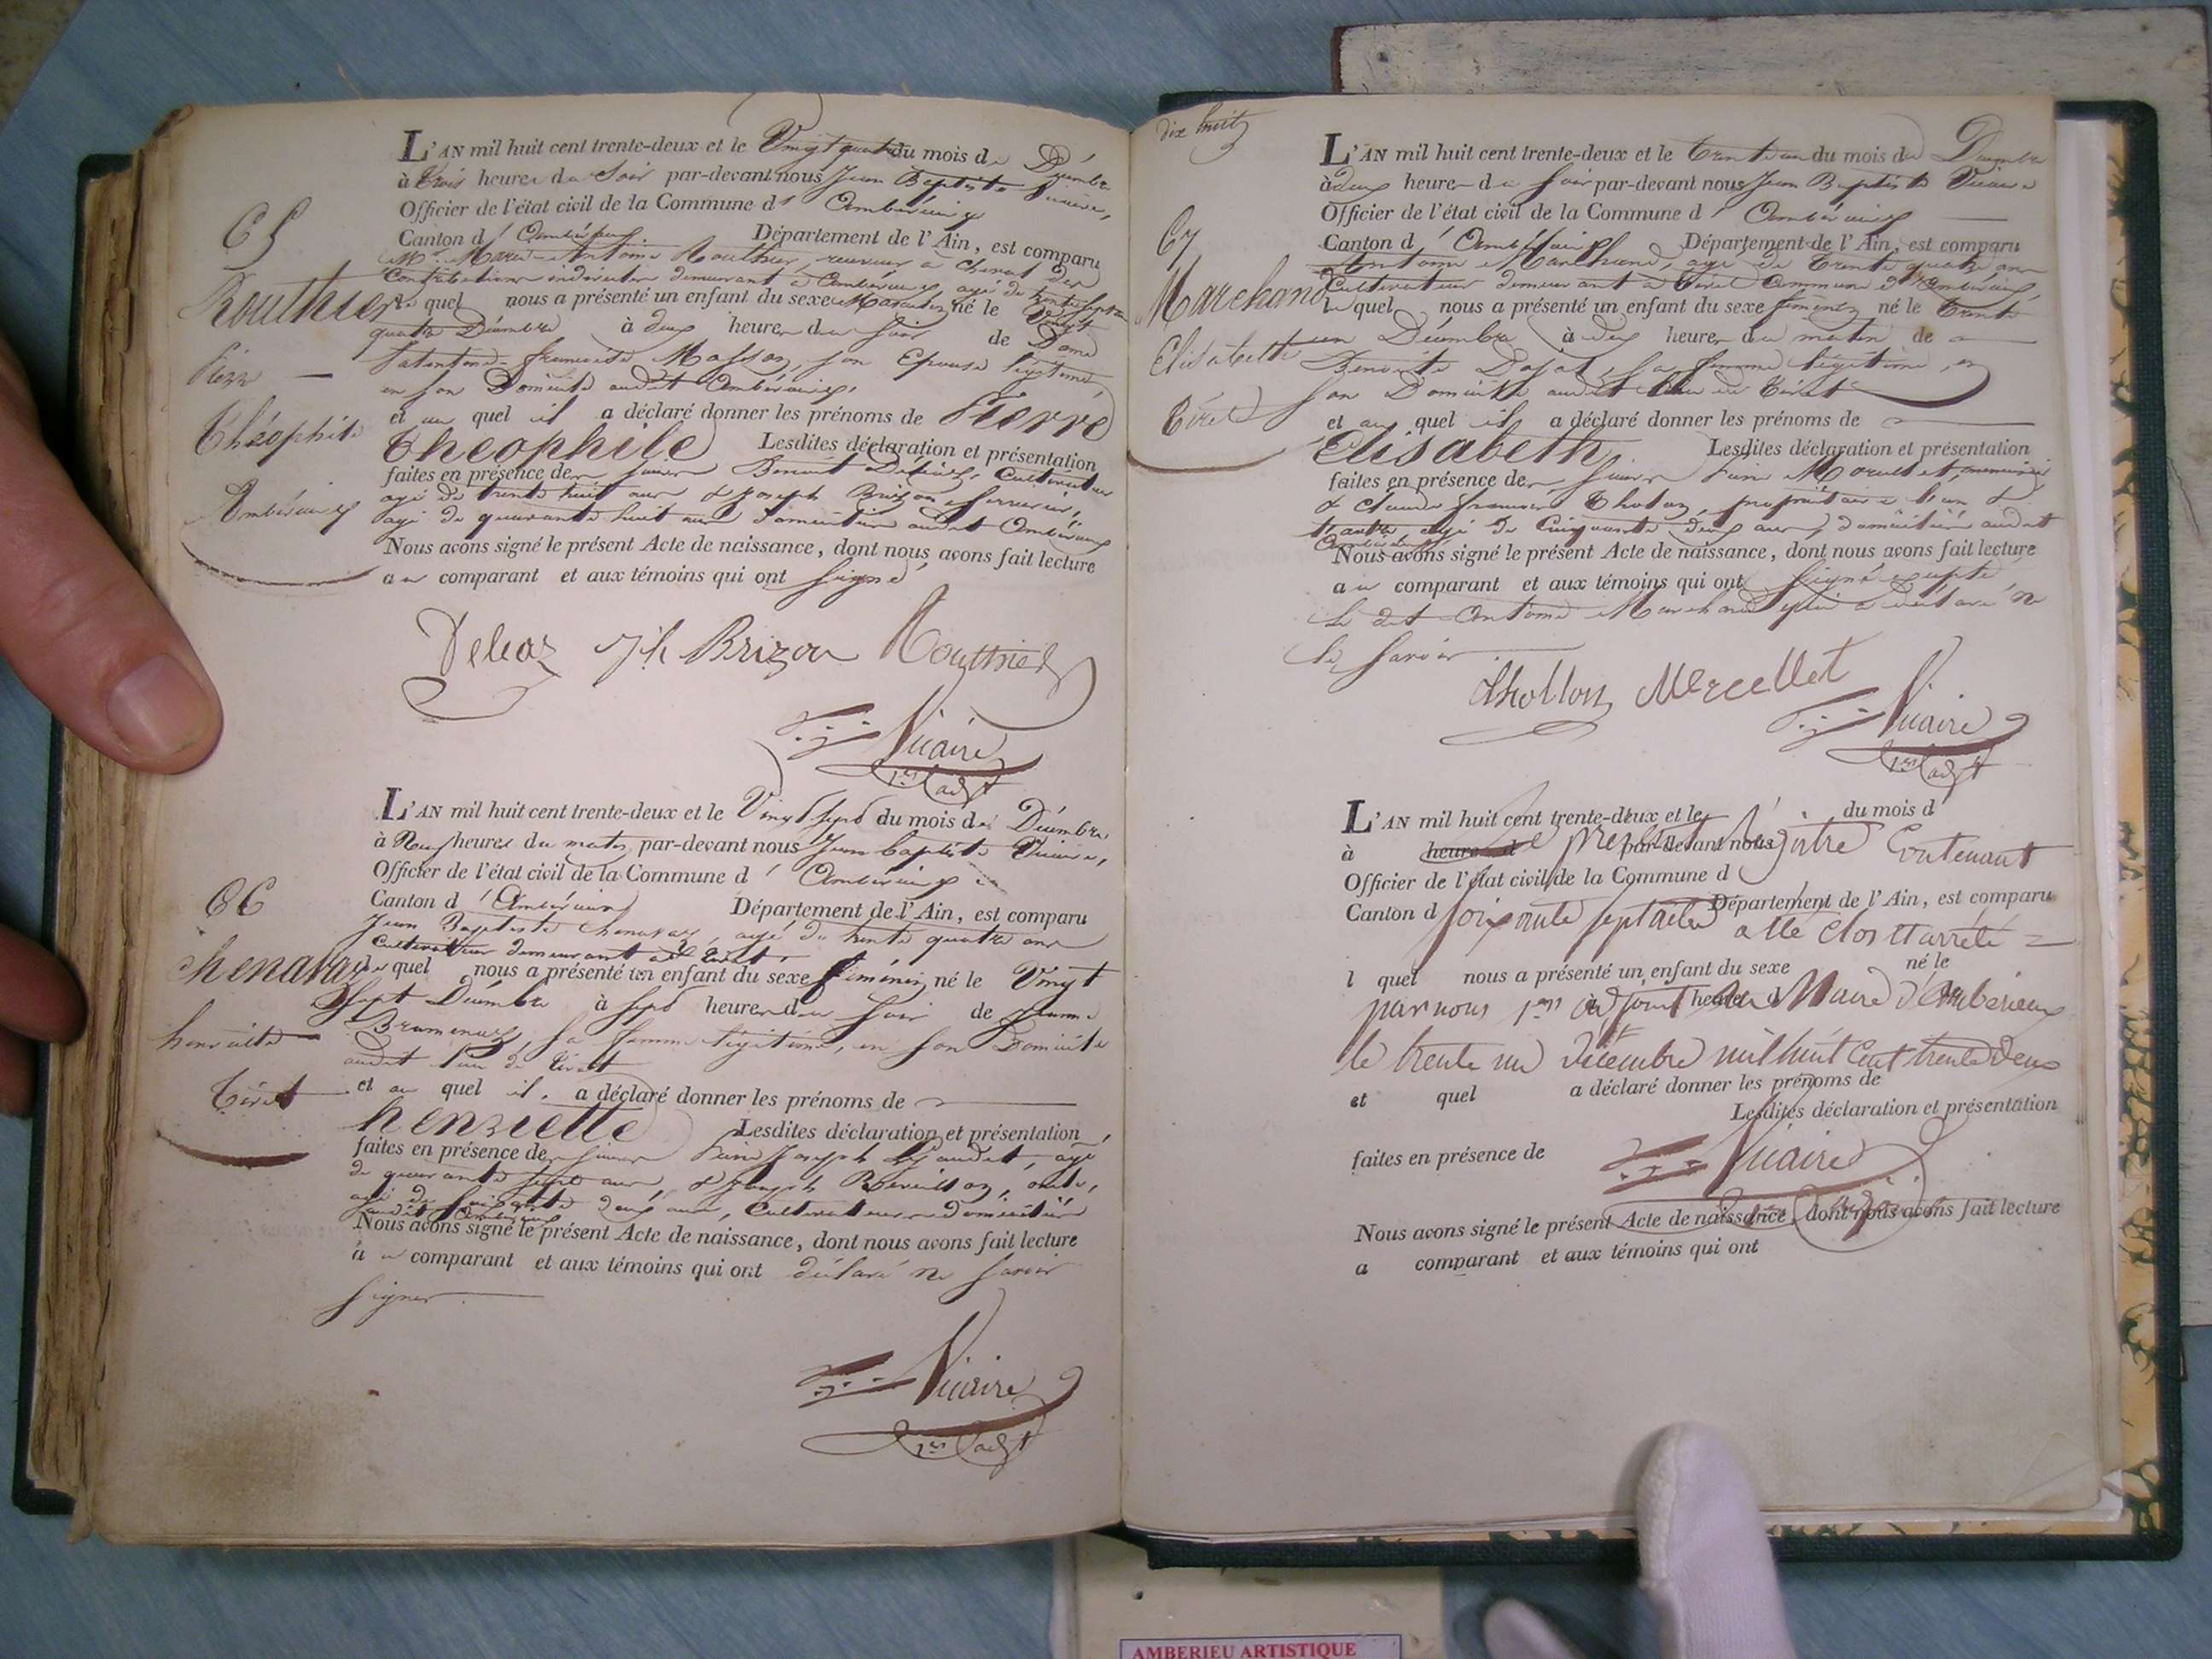 65
Routhier
Pierre
Théophile
Ambérieux
L'AN mil huit cent trente-deux et le Vingt quatre du mois de Décembre
à trois heures du Soir par-devant nous Jean Baptiste Vicaire,
Officier de l'état civil de la Commune d' Ambérieux
Canton d' Ambérieux. Département de l'Ain, est comparu
Mr. Marie-Antoine Routhier, receveur à cheval des
Contributions indirectes demeurant à Ambérieux, agé de trente sept ans
le quel nous a présenté un enfant du sexe Masculin né le Vingt
quatre Décembre à deux heures du Soir de Dame
françoise son Epouse légitime,
en son Domicile audit Ambérieux,
et au quel il a déclaré donner les prénoms de Pierre
Théophile Lesdites déclaration et présentation
faites en présence de sieurs Benoit Cultivateur
agé de trente huit ans & Joseph Brizon Serrurier,
agé de quarante huit ans domiciliés audit Ambérieux
Nous avons signé le présent Acte de naissance, dont nous avons fait lecture
au comparant et aux témoins qui ont Signé
Jh Brizon Routhier
Vicaire
1er adjt
66
Chenavaz
henriette
Tiret
L'AN mil huit cent trente-deux et le Vingt Sept du mois de Décembre
à Neuf heures du matin par-devant nous Jean Baptiste Vicaire,
Officier de l'état civil de la Commune d' Ambérieux
Canton d' Ambérieux Département de l'Ain, est comparu
Jean Baptiste Chenavaz, agé de trente quatre ans
Cultivateur demeurant à Tiret,
le quel nous a présenté un enfant du sexe féminin né le Vingt
Sept Décembre à sept heures du Soir de Jeanne
sa femme légitime, en son Domicile
audit lieu de Tiret
et au quel il a déclaré donner les prénoms de
henriette Lesdites déclaration et présentation
faites en présence de sieurs Joseph agé
de quarante sept ans, & Joseph agé
de Soixante deux ans, Cultivateurs domiciliés
audit Ambérieux
Nous avons signé le présent Acte de naissance, dont nous avons fait lecture
au comparant et aux témoins qui ont déclaré ne Savoir
Signer
Vicaire
1er adjt
dix huit
67
Marchand
Elisabeth
Tiret
L'AN mil huit cent trente-deux et le trente un du mois de Décembre
à deux heures du Soir par-devant nous Jean Baptiste Vicaire
Officier de l'état civil de la Commune d' Ambérieux
Canton d' Ambérieux Département de l'Ain, est comparu
Antoine Marchand, agé de trente quatre ans
Cultivateur demeurant à Tiret Commune d'Ambérieux,
le quel nous a présenté un enfant du sexe féminin né le trente
un Décembre à deux heures du matin de
Benoite sa femme légitime, en
son Domicile audit lieu de Tiret
et au quel il a déclaré donner les prénoms de
Elisabeth Lesdites déclaration et présentation
faites en présence de sieurs
& Claude françois propriétaire l'un &
l'autre agé de Cinquante deux ans, domiciliés audit
Ambérieux
Nous avons signé le présent Acte de naissance, dont nous avons fait lecture
au comparant et aux témoins qui ont Signé excepté
le dit Antoine Marchand qui a déclaré ne
le Savoir
Chollon Mercellet
Vicaire
1er adjt
L'AN mil huit cent trente-deux et le du mois d
à heure d par-devant nous
Le présent registre Contenant
Officier de l'état civil de la Commune d
Canton d Département de l'Ain, est comparu
soixante sept actes a été clos et arrêté
l quel nous a présenté un enfant du sexe né le
à heure d de
par nous 1er adjoint du Maire d'Amberieux
le trente un Décembre mil huit cent trente deux
et quel a déclaré donner les prénoms de
Lesdites déclaration et présentation
faites en présence de
Vicaire
Nous avons signé le présent Acte de naissance, dont nous avons fait lecture
a comparant et aux témoins qui ont
AMBERIEU ARTISTIQUE